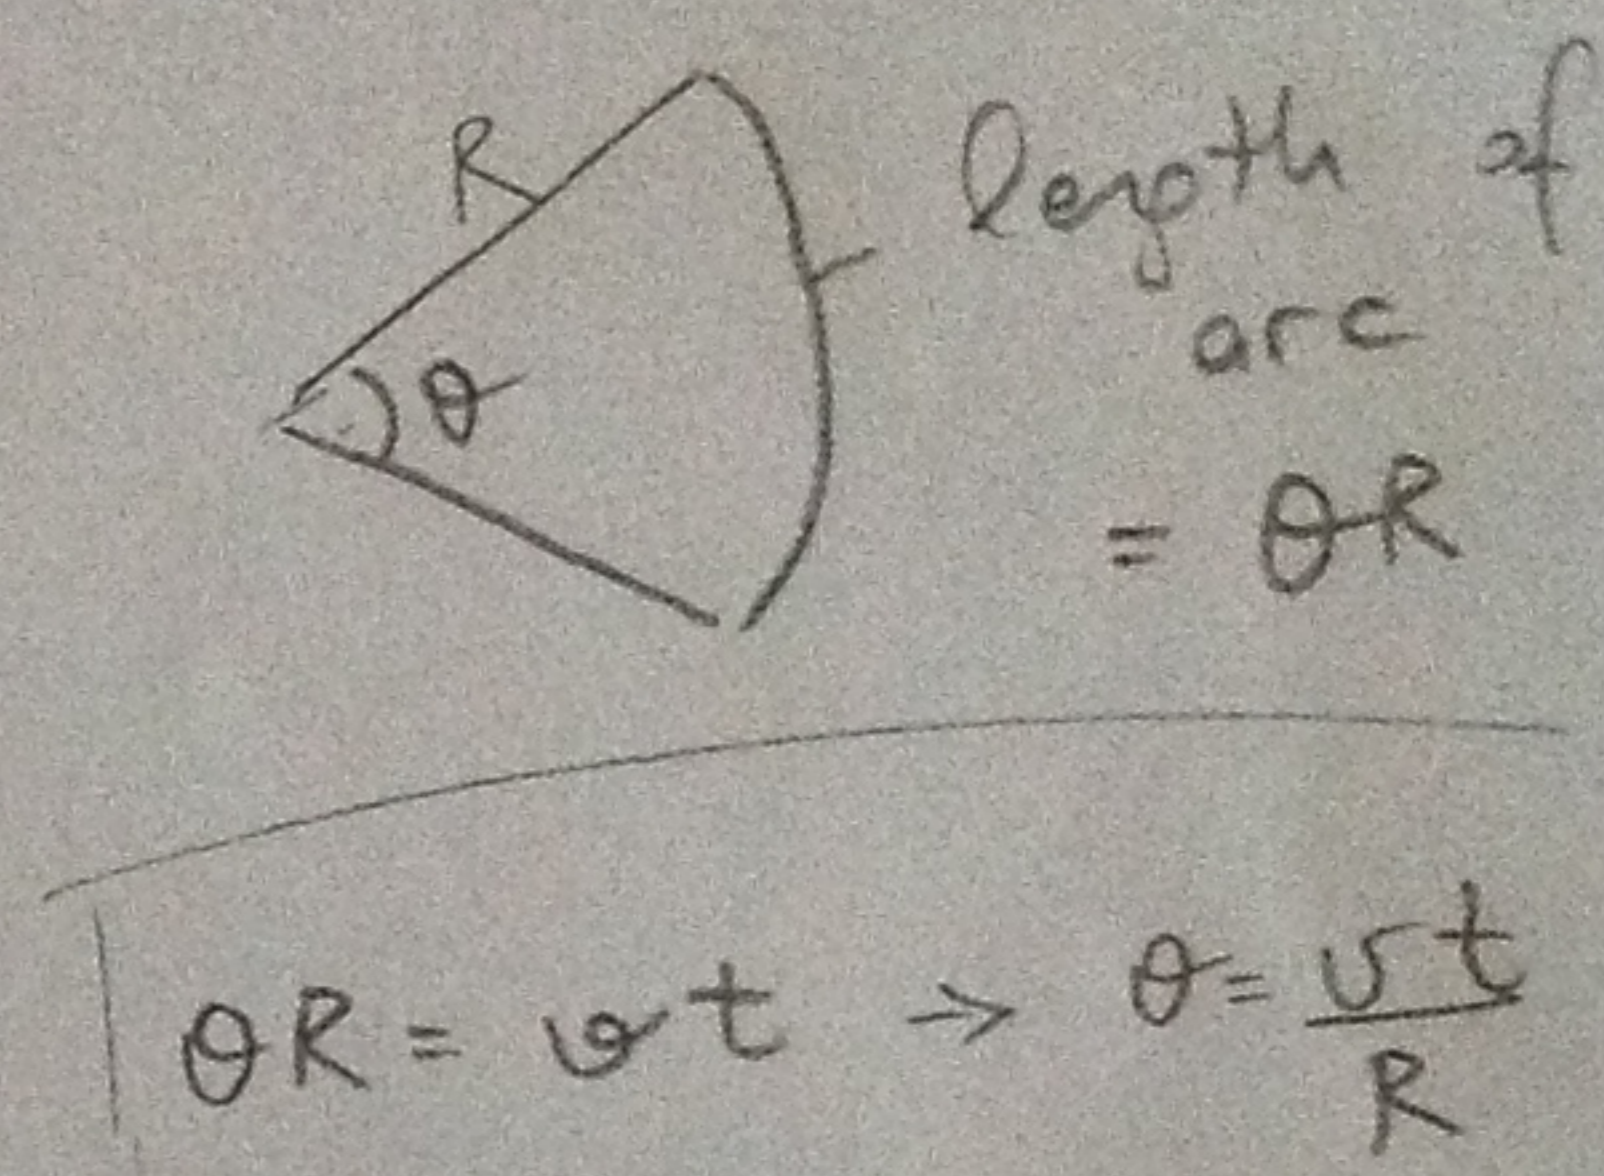 R
length of
arc
θ
= θR
θR = vt → θ = vt/R